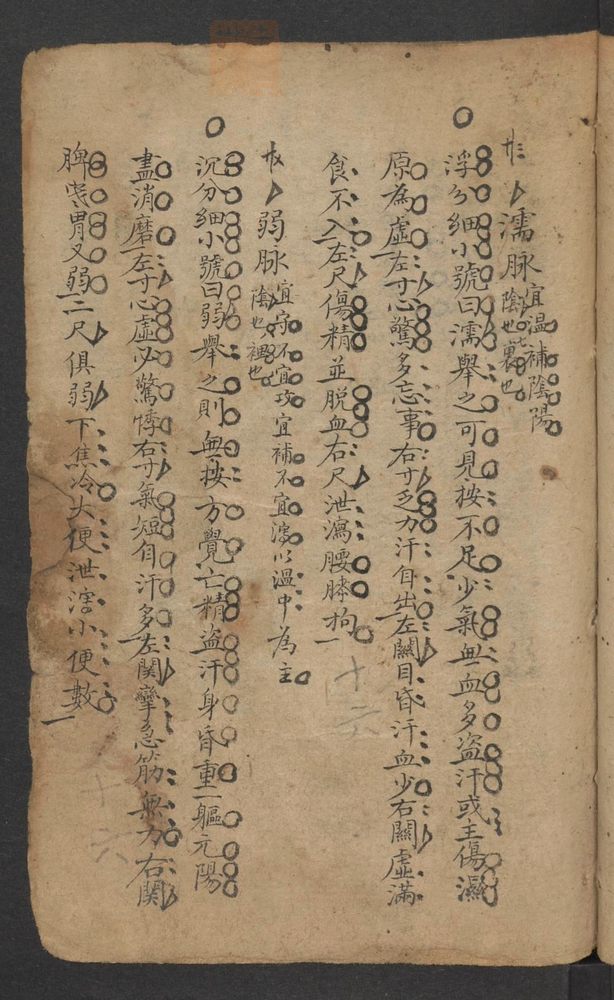 卅 濡脉 宜温補陰陽 陰也七裏也
浮分細小號曰濡舉之可見按不足少氣無血多盗汗或主傷濕
原為虛左寸心驚多忘事右寸乏力汗自出左關目昏汗血少右關虛滿
食不入左尺傷精並脱血右尺泄瀉腰膝拘
弱脉 宜守不宜攻宜補不宜瀉以温中為主 陰也 裡也
沉分細小號曰弱舉之則無按方覺亡精盗汗身昏重一軀元陽
盡消磨左寸心虛必驚悸右寸氣短自汗多左関攣急筋無力右関
脾寒胃又弱二尺俱弱下焦冷大便泄瀉小便數
十六